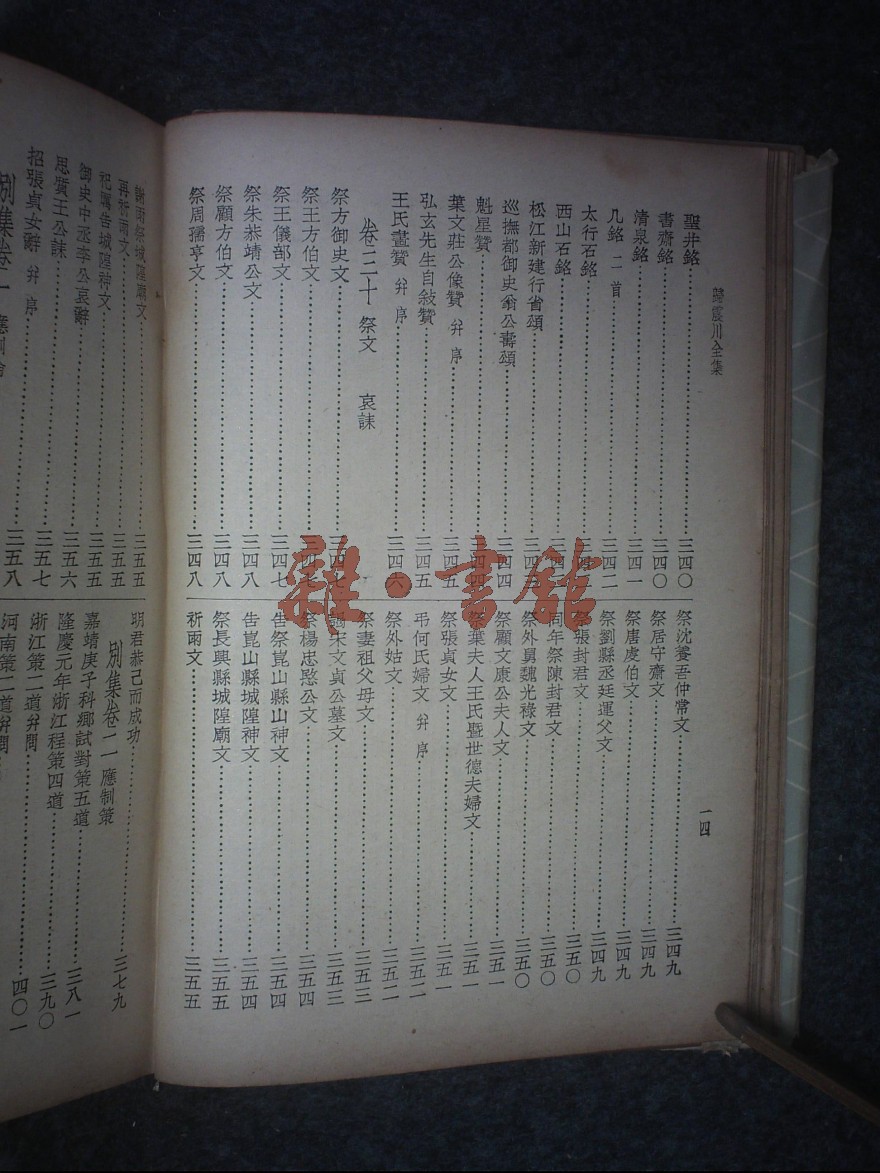 歸震川全集
一四
聖井銘……三四〇
書齋銘……三四〇
清泉銘……三四一
几銘 二首……三四二
太行石銘
西山石銘
松江新建行省頌
巡撫都御史翁公壽頌……三四四
魁星贊
葉文莊公像贊 并序……三四五
弘玄先生自敘贊……三四五
王氏畫贊 并序……三四六
卷三十 祭文 哀誄
祭方御史文
祭王方伯文
祭王儀部文……三四七
祭朱恭靖公文……三四八
祭顧方伯文……三四八
祭周孺亨文……三四八
祭沈養吾仲常文……三四九
祭居守齋文……三四九
祭唐虔伯文……三四九
祭劉縣丞廷運父文……三四九
祭張封君文……三五〇
同年祭陳封君文……三五〇
祭外舅魏光祿文……三五〇
祭顧文康公夫人文……三五一
祭葉夫人王氏暨世德夫婦文……三五一
祭張貞女文……三五一
弔何氏婦文 并序……三五二
祭外姑文……三五二
祭妻祖父母文……三五三
謁宋文貞公墓文……三五三
祭楊忠愍公文……三五四
告祭崑山縣山神文……三五四
告崑山縣城隍神文……三五四
祭長興縣城隍廟文……三五五
祈雨文……三五五
謝雨祭城隍廟文……三五五
再祈雨文……三五五
祀厲告城隍神文……三五五
御史中丞李公哀辭……三五六
思質王公誄……三五七
招張貞女辭 并序……三五八
別集卷一
明君恭己而成功……三七九
別集卷二 應制策
嘉靖庚子科鄉試對策五道……三八一
隆慶元年浙江程策四道……三九〇
浙江策二道并問……四〇一
河南策二道并問
雜·書館